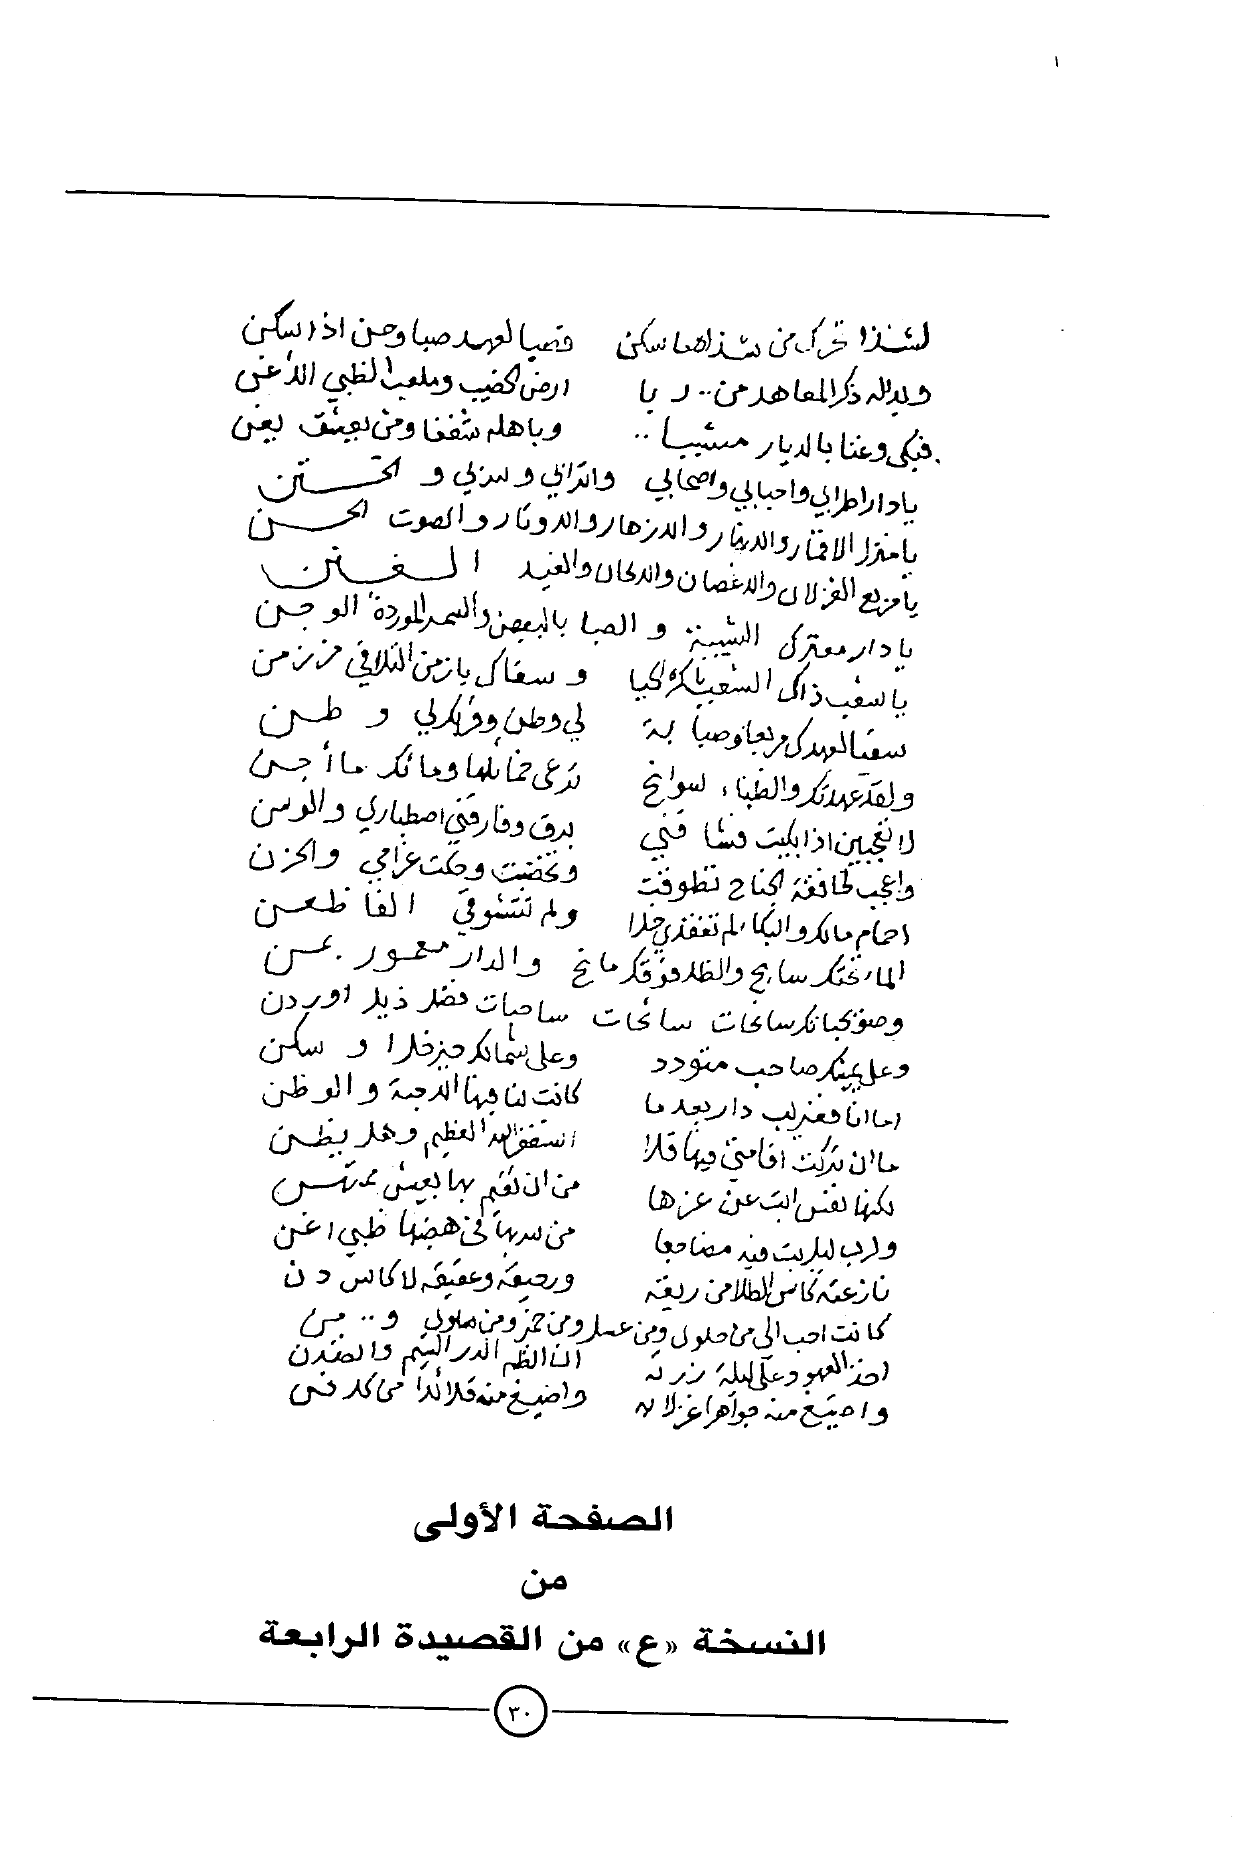 لشذا تحرك من شذاها سكن فصبا لعهد صبا وحن اذا سكن
وبداله ذكر المعاهد من .. ربا ارض الكثيب وملعب الظبي الأغن
فبكى وعنا بالديار مشببا .. وباهله شغفا ومن يعشق يغن
يا دار اطرابي واحبابي واصحابي واترابي و
يا منزل الاقمار و والازهار والاوتار والصوت الحسن
يا مربع الغزلان والاغصان و والغيد الـغـنن
يا دار معترك الشبيبة و الصبا بالبيض والسمر الموردة الوجن
يا سعب ذاك الشعب الحيا و سقاك يا زمن التلاقي من زمن
سقيا لعهدك مربعا وصبا به لي وطن و وطن
ولقد عهدتك والظباء سوانح ترعى خمائلها ومائك ما أجن
لا تعجبين اذا بكيت فشاقني برق وفارقني اصطباري والوسن
واعجب لخافقة الجناح تطوقت وتخضبت وحكت غرامي والحزن
احمام مالك والبكا لم تفقدي خلا ولم تتشوقي الفا ظعن
الماء تحتك سابح والظل فوقك والدار معمور
سانحات سائحات ساحبات فضل ذيل اوردن
وعلى يمينك صاحب متودد وعلى شمالك خير خل و سكن
كانت لنا فيها الاحبة والوطن
ما ان تركت اقامتي فيها قلا استغفر الله العظيم وهل يظن
لكنها نفس ابت عن عزها من ان تقيم بها بعيش ممتهن
ولرب ليل بت فيه مضاجعا من سربها في هضبها ظبي اغن
نازعته كاس الطلا من ريقه ورحيقه وعقيقه لا كاس دن
كانت احب الي من حلول ومن عسل ومن خمر ومن سلوى و .. من
العهود على ليلة زرته انا انظم الدر اليتيم
واصيغ منه جواهرا غزلا به واصيغ منه قلائدا من كل فن
الصفحة الأولى
من
النسخة «ع» من القصيدة الرابعة
٣٠